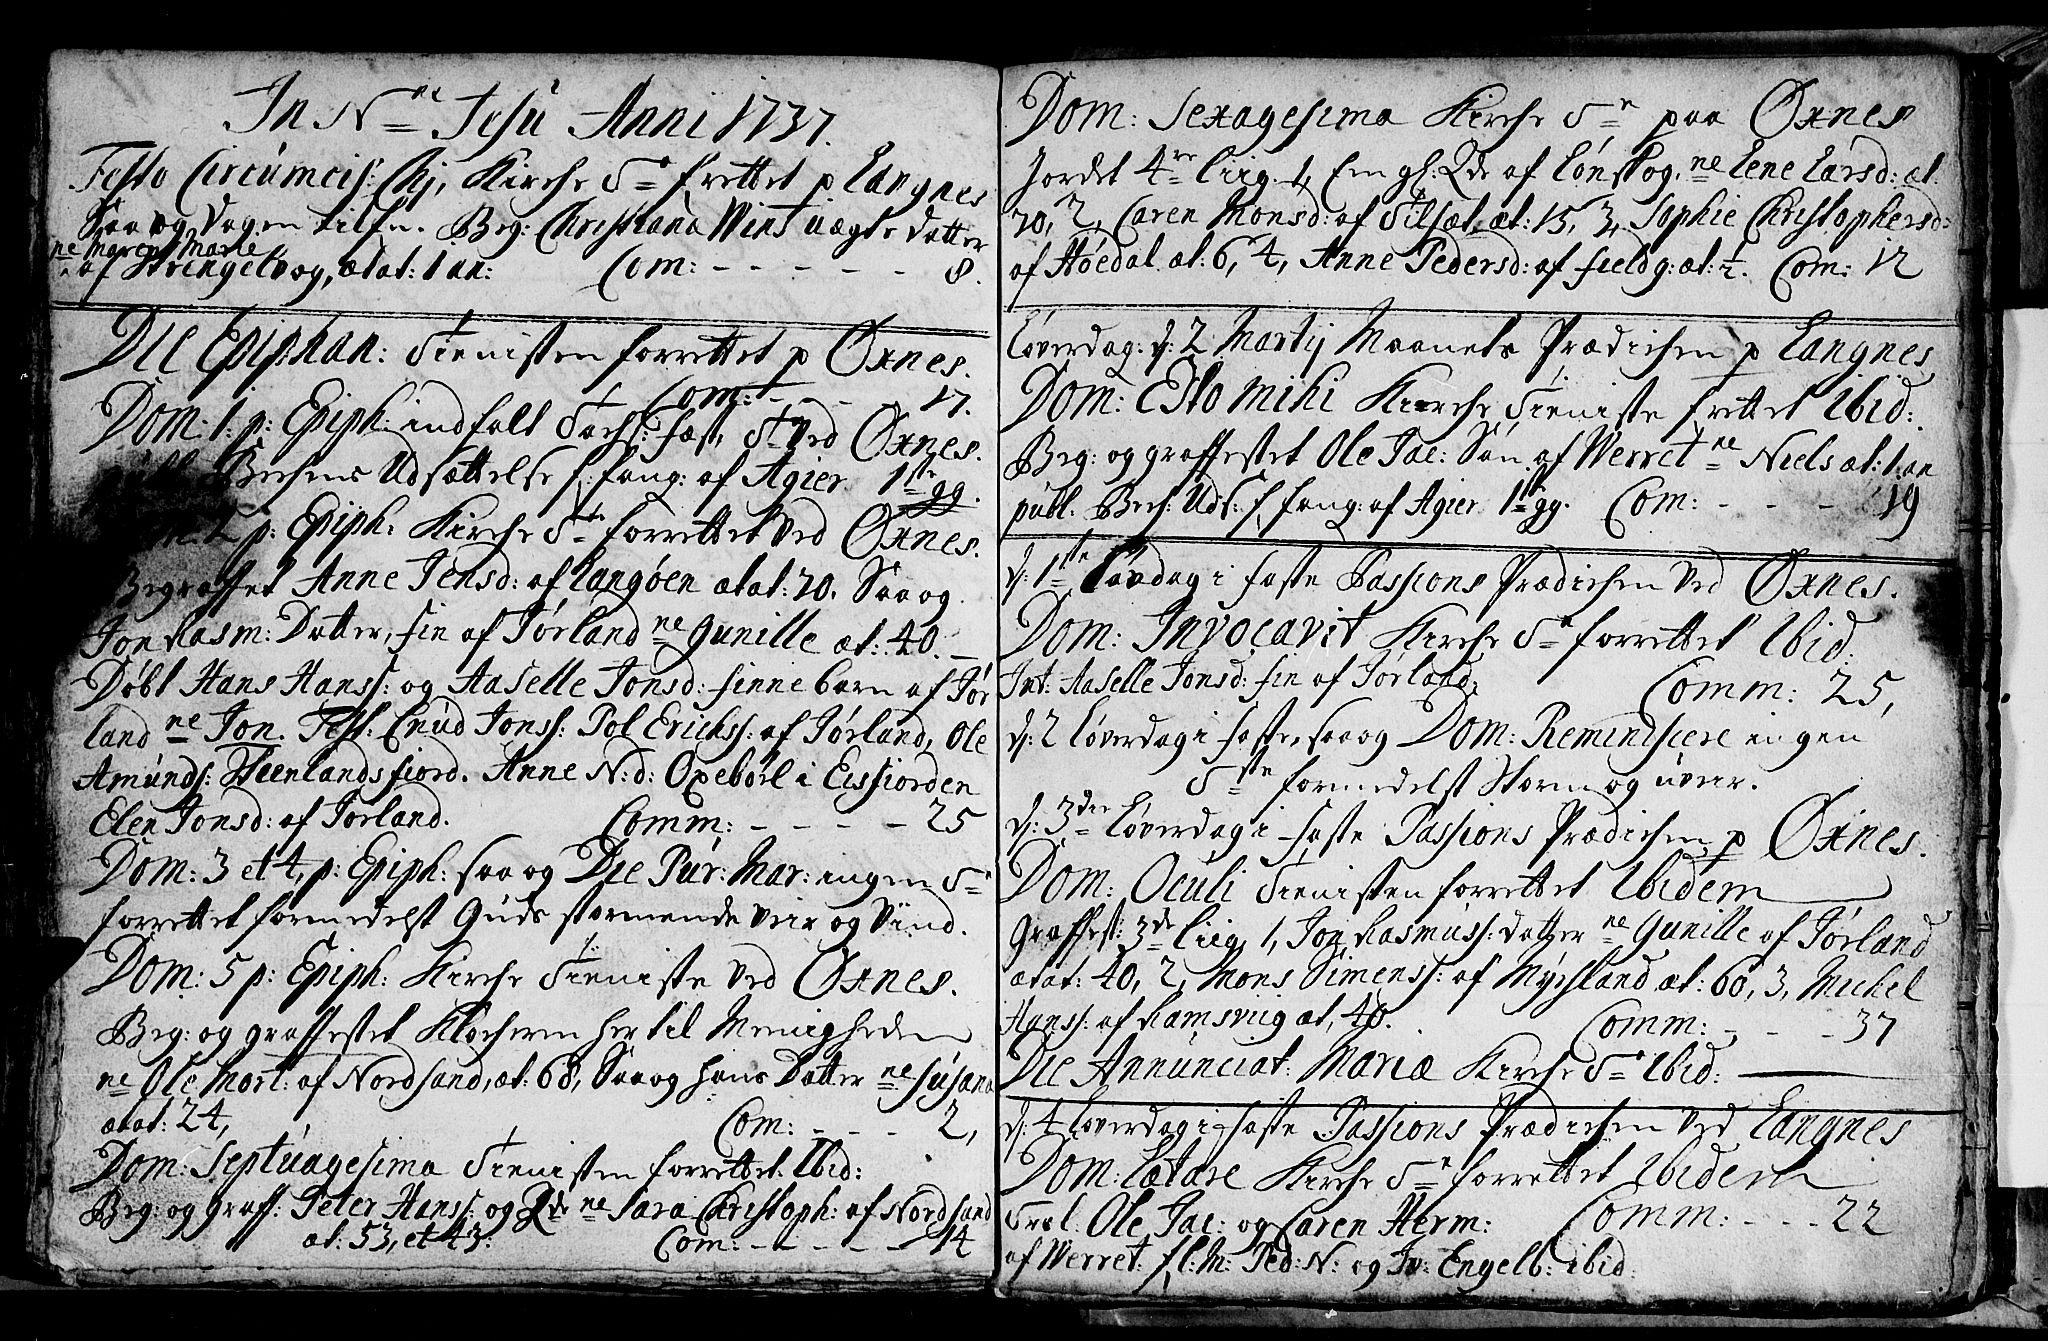 In Nne Jesu Anni 1737.
Festo Circumcis: Chj, Kirche Ste frettet p Langnes
Saa og Dagen tilfn. Beg: Christiana Wints uægte Datter
ne Maren Marie
af Strengelvog, ætat: 1 an: Com: - - - - - 8.
Die Epiphan: Tienisten forrettet p Øxnes.
Com: - - - - 17.
Dom: 1. p: Epiph: indfalt Ved Øxnes.
publ: Bechens Udsættelse f: fang: af Agier 1ste gg.
Dom. 2 p: Epiph: Kirche Ste forrettet Ved Øxnes.
Begraffet Anne Jensd: af Langøen ætat: 20. Saa og
Jon Rasm: Datter, fin af Jørland ne Gunille æt: 40. -
Døbt Hans Hanss: og Aaselle Jonsd: finne barn af Jør
land ne Jon. Test: Cnud Jonss: Pol Erichss: af Jørland, Ole
Amunds: Steenlandsfiord. Anne N:d: Oxebøl i Eisfiorden
Elen Jonsd: af Jorland. Comm: - - - - 25
Dom: 3 et 4, p: Epiph: saa og Die Pur: Mar: ingen Ste
forrettet formedelst Guds stormende Veir og Vind.
Dom: 5 p: Epiph: Kirche Tieniste Ved Øxnes.
Beg: og graffestet Klocheren her til Menigheden
ne Ole Mort: af Nordsand, æt: 68, Saa og hans Datter ne Susana
ætat: 24, Com: - - - 2,
Dom: Septuagesima Tienisten forrettet Ibid:
Beg: og graff: Peter Hanss: og ne Sara Christoph: af Nordsand
æt: 53, et 43: Com: - - - - - 14
Dom: Sexagesima Kirche Ste paa Øxnes
Jordet 4re Liig. 1, Em gl: af Lønskog, ne Lene Larsd: æt:
70, 2, Caren Monsd: af Tilsæt, æt: 15, 3, Sophie Christophersd:
af Høedal æt: 6, 4, Anne Pedersd: af fieldg: æt: ½. Com: 12
Løverdag. d: 2 Martij Maanets Prædichen p Langnes
Dom: Esto mihi Kirche Tieniste frettet Ibid:
Beg: og graffestet Ole Jac: Søn af Werret ne Niels æt: 1 an
publ. Bech: Uds: f fang: af Agier 1ste gg. Com: - - - 19
d: 1ste Løvdag i faste Passions Prædichen Ved Øxnes.
Dom: Invocavit Kirche Ste forrettet Ibid:
Int: Aaselle Jonsd: fin af Jørland. Comm: 25,
d: 2 Løverdag i faste, saa og Dom: Reminiscere ingen
Ste formedelst Storm og uveir.
d: 3die Løverdag i faste Passions Prædichen p Øxnes.
Dom: Oculi Tienisten forrettet Ibidem
Graffest: 3de Liig 1, Jon Rasmuss: datter ne Gunille af Jørland
ætat: 40, 2, Mons Simenss: af Myrland æt: 60, 3, Michel
Hanss: af Ramsviig æt, 40. Comm: - - - 37
Die Annunciat: Mariæ Kirche Ste Ibid:
d: 4 Løverdag i faste Passions Prædichen Ved Langnes
Dom: Lætare Kirche Ste forrettet Ibidem
Trol: Ole Jac: og Caren Herm: Comm: - - - 22
af Werret: fl: M: Ped: N: og Iv: Engelb: ibid: